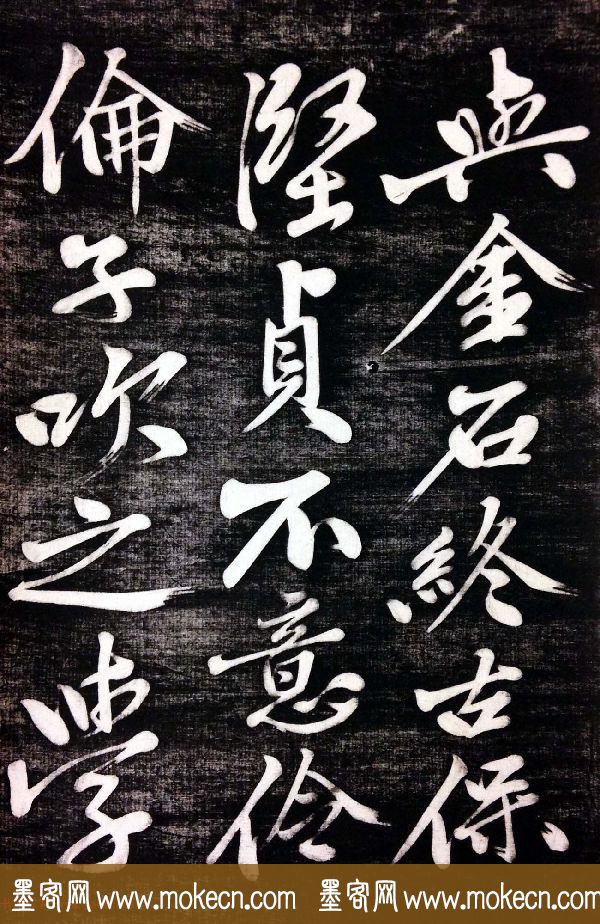 與金石終古保
堅貞不意伶
倫子吹之學
墨客网 www.mokecn.com 墨客网 www.mokecn.com